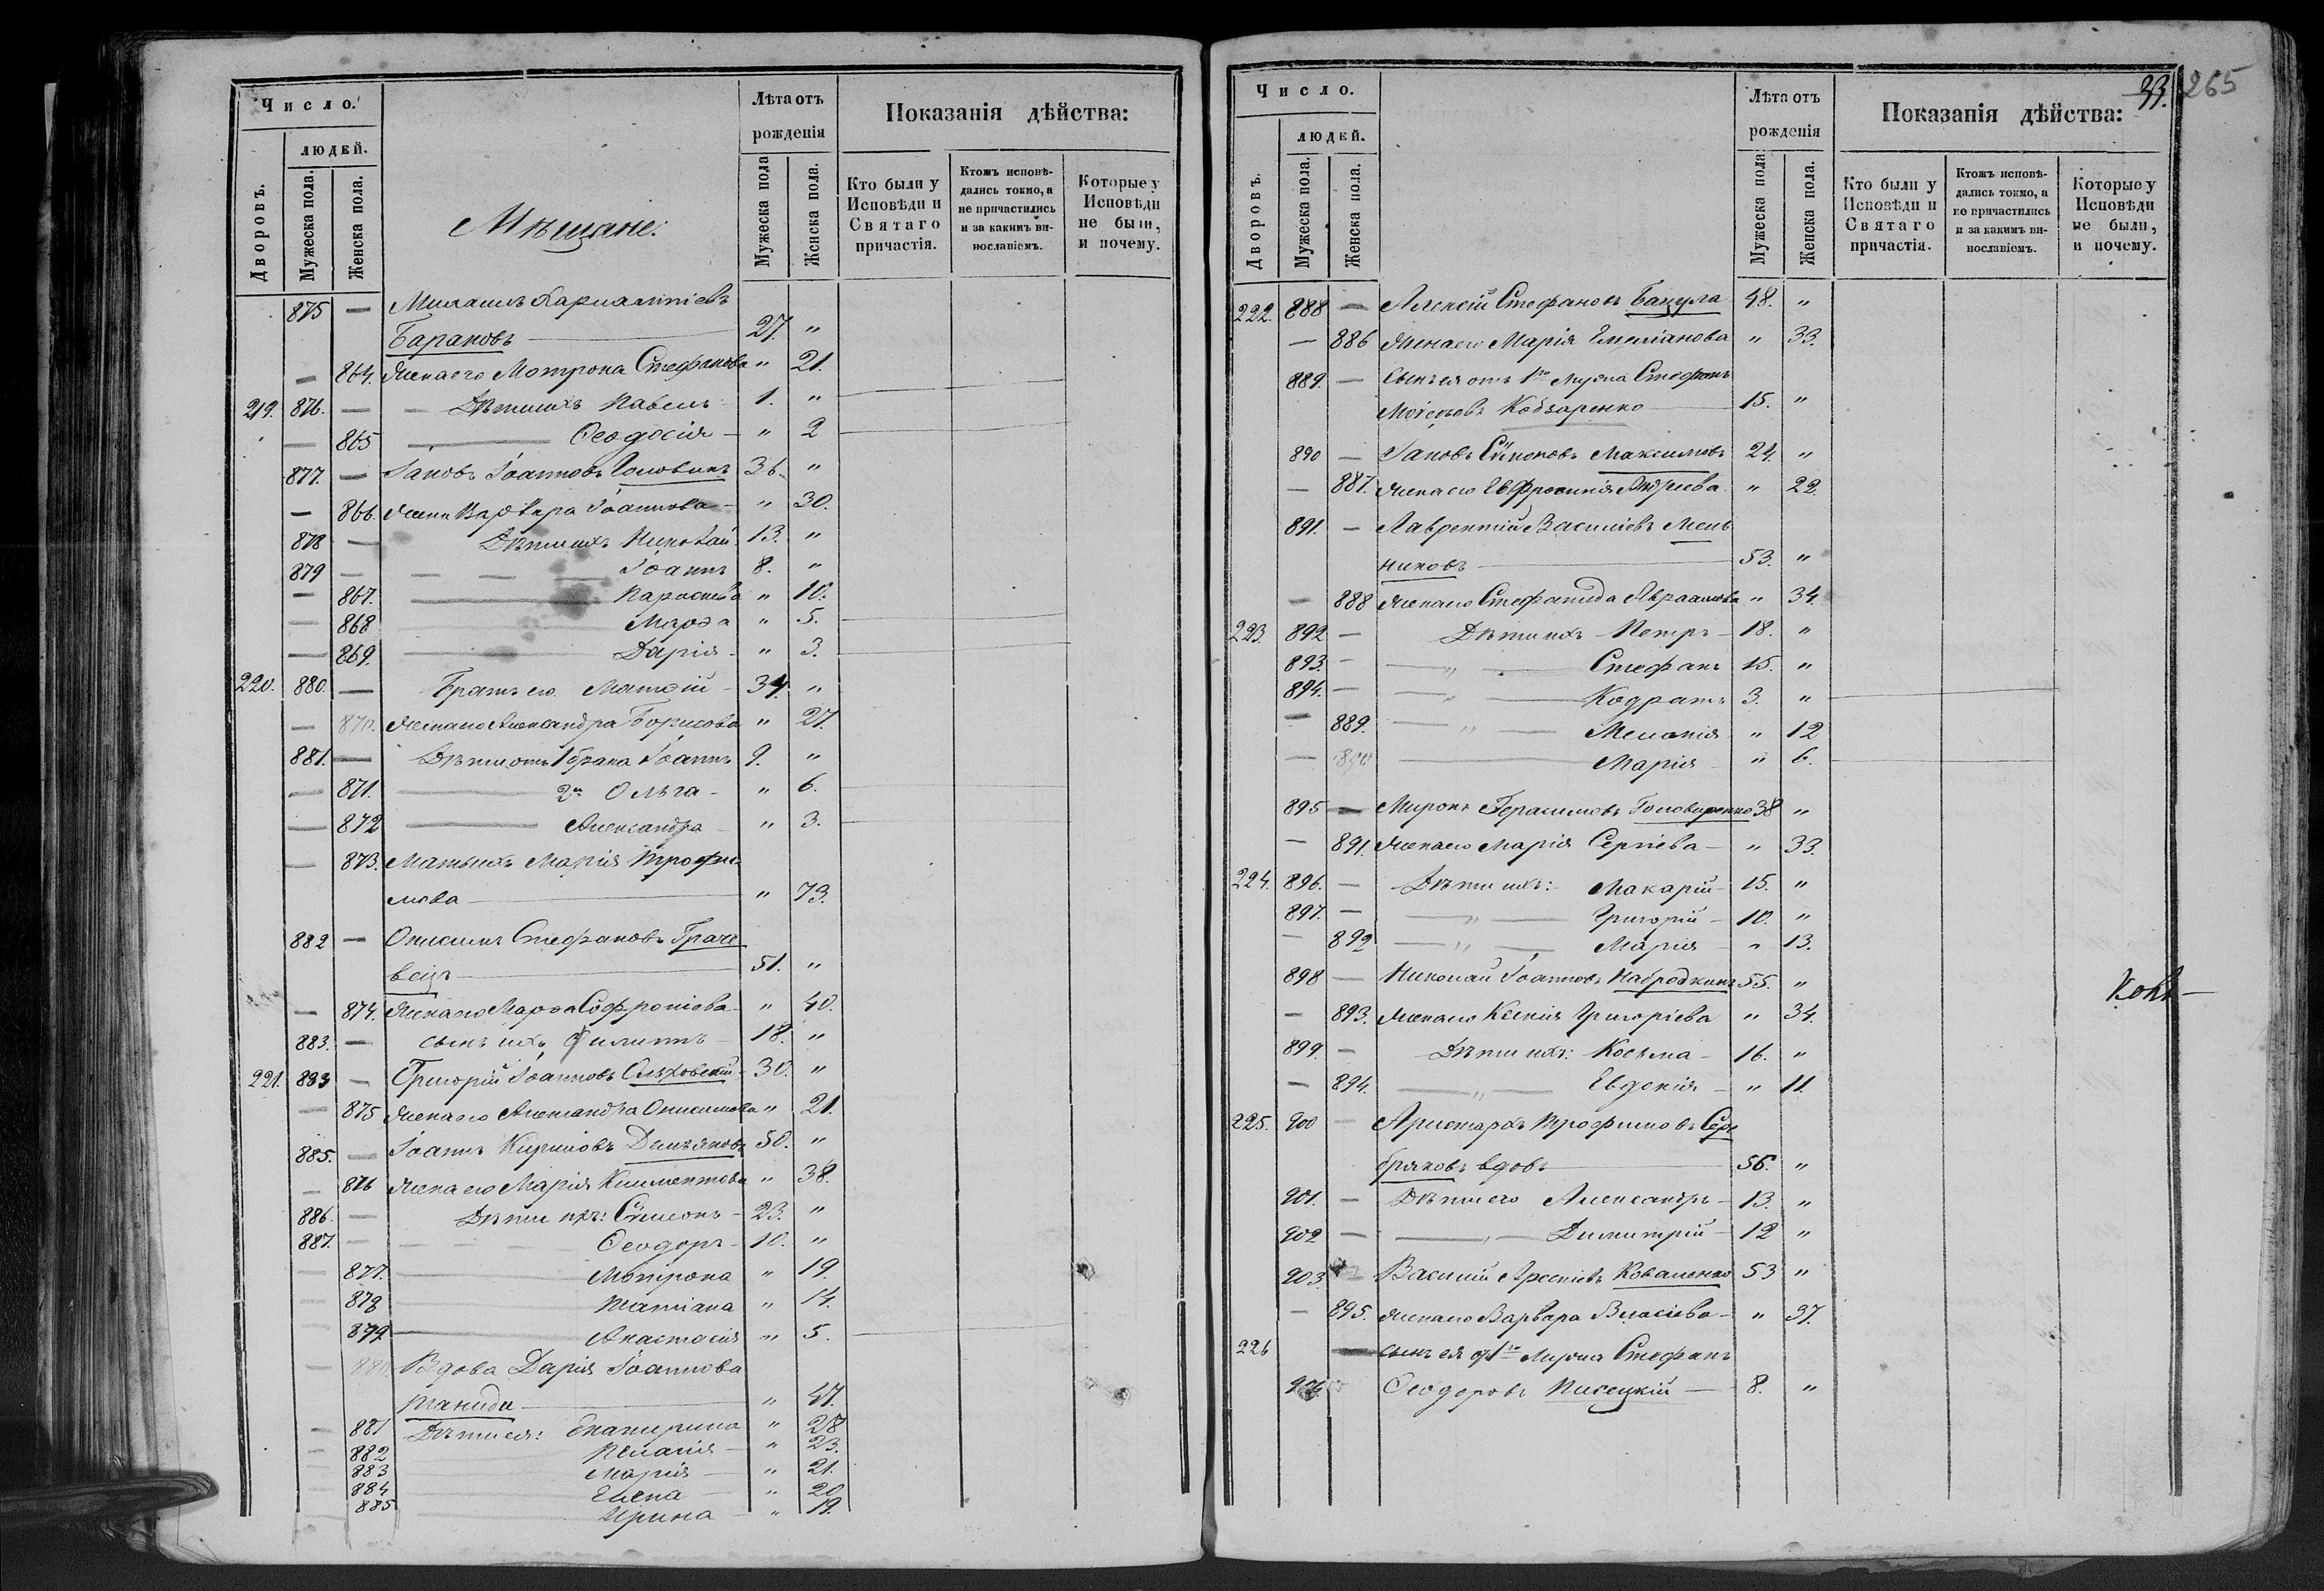 Число.
людей.
Дворовъ.
Мужеска пола.
Женска пола.
Мѣщане.
Лѣта отъ
рожденія
Мужеска пола
Женска пола.
Показанія дѣйства:
Кто были у
Исповѣди и
Святаго
причастія.
Ктожъ исповѣ-
дались токмо, а
не причастились
и за какимъ ви-
нословіемъ.
Которые у
Исповѣди
не были,
и почему.
875 —
Барановъ — 27. "
— 864. Жена его Мотрона Стефанова " 21.
219. 876. — Дѣти ихъ Павелъ 1. "
— 865 Ѳеодосія " 2
877. — Іаковъ Іоанновъ Головинъ 36. "
— 866. Жена Варвара Іоаннова " 30.
878 — Дѣти ихъ Николай 13. "
879 — Іоаннъ 8. "
— 867. Параскева " 10.
— 868 Марѳа " 5.
— 869. Дарія " 3.
220. 880. — Братъ его Матѳій 34. "
— 870. Жена его Александра Борисова " 27.
881. — Дѣти отъ 1 брака Іоаннъ 9. "
— 871. 2го Ольга " 6.
— 872 Александра " 3.
— 873. Мать ихъ Марія Трофи-
мова — " 73.
882 — Онисимъ Стефановъ Граче
вецъ — 51. "
— 874. Жена его Марѳа Софроніева " 40.
883. — сынъ ихъ Филиппъ 18. "
221. 883 — Григорій Іоанновъ 30. "
— 875 Жена его Александра Онисимова " 21.
885. — Іоаннъ Кириловъ Демьяновъ 50. "
— 876 Жена его Марія Климентова " 38.
886. — Дѣти ихъ: Сѵмеонъ 23. "
887. — Ѳеодоръ 10. "
— 877. Мотрона " 19.
— 878 Татіана " 14.
— 879. Анастасія " 5.
— 880 Вдова Дарія Іоаннова
" 47.
— 881 Дѣти ея: Екатерина " 28
882 Пелагія " 23.
883 Марія " 21.
884 Елена " 20
885 Ирина " 19.
33. 265
Число.
людей.
Дворовъ.
Мужеска пола.
Женска пола.
Лѣта отъ
рожденія
Мужеска пола
Женска пола.
Показанія дѣйства:
Кто были у
Исповѣди и
Святаго
причастія.
Ктожъ исповѣ-
дались токмо, а
не причастились
и за какимъ ви-
нословіемъ.
Которые у
Исповѣди
не были,
и почему.
222. 888 — Алексій Стефановъ Бацула 48. "
— 886 Жена его Марія Емеліанова " 33.
889. — Сынъ ея отъ 1го мужа Стефанъ
Моѵсеевъ Кобзаренко 15. "
890 — Іаковъ Сѵмоновъ Максимовъ 24. "
— 887. Жена его Евфросинія Андреева " 22.
891. — Лаврентій Василіевъ Мель
никовъ — 53. "
— 888 Жена его Стефанида Авраамова " 34.
223. 892 — Дѣти ихъ Петръ 18. "
893. — " Стефанъ 15. "
894. — " Кодратъ 3. "
— 889. " Меланія " 12
— 890 Марія " 6.
895 — Миронъ Герасимовъ Головиренко 38 "
— 891. Жена его Марія Сергіева " 33.
224. 896. — Дѣти ихъ: Макарій 15. "
897. — " Григорій 10. "
— 892 " Марія " 13.
898 — Николай Іоанновъ Набродкинъ 55. "
— 893. Жена его Ксенія Григоріева " 34.
899. — Дѣти ихъ: Косьма 16. "
— 894. " Евдокія " 11.
225. 900 — Аристархъ Трофимовъ Сере
бряковъ вдовъ 56. "
901. — Дѣти его Александръ 13. "
902 — " Димитрій 12 "
903 Василій Коваленко 53 "
— 895. Жена его Варвара Власіева " 37.
226 сынъ ея 1го мужа Стефанъ
904 Ѳеодоровъ Писецкій 8. "